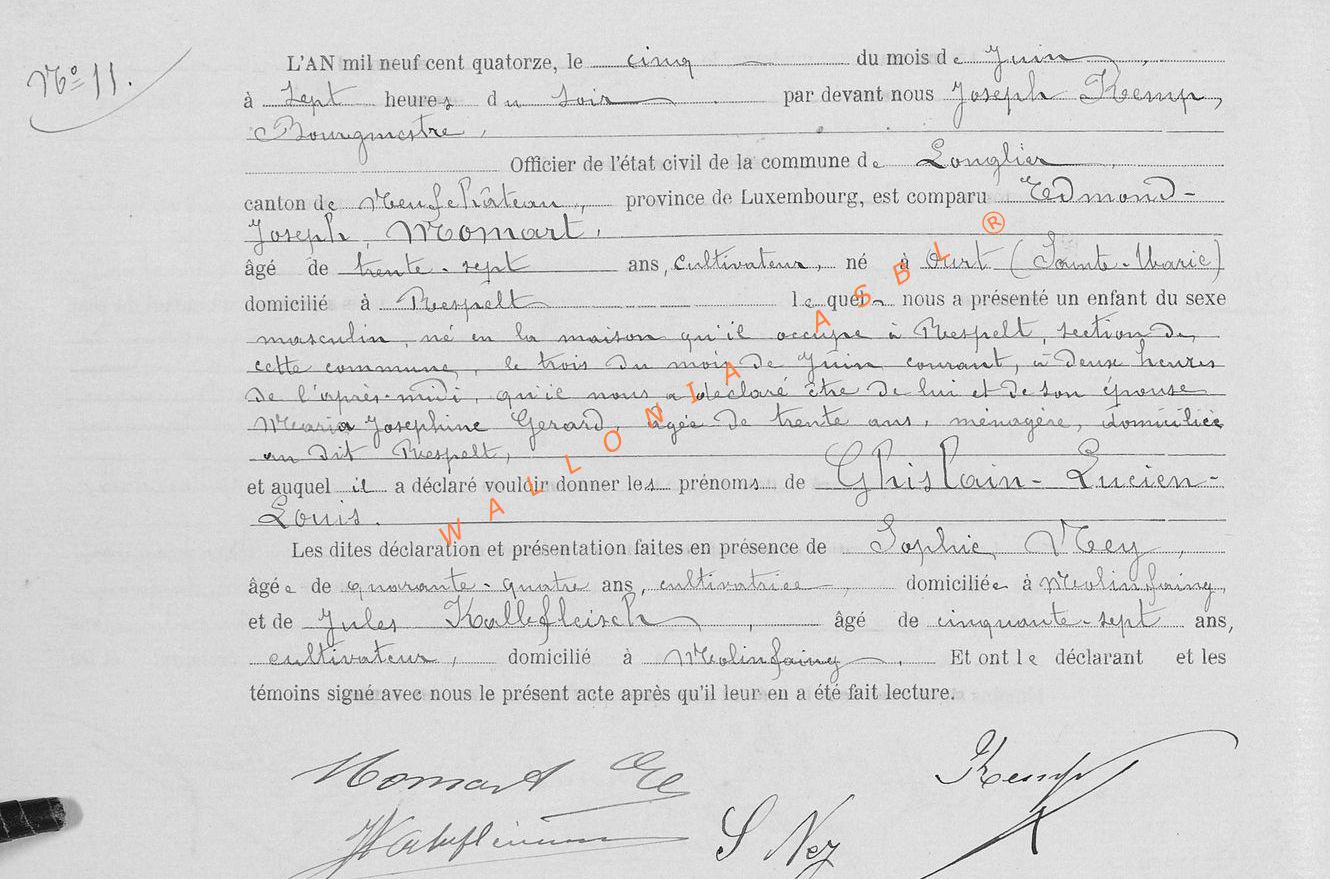 N° 11.
L'AN mil neuf cent quatorze, le cinq du mois de Juin,
à sept heures du soir par devant nous Joseph Kemp,
Bourgmestre,
Officier de l'état civil de la commune de Longlier,
canton de Neufchâteau, province de Luxembourg, est comparu Edmond-
Joseph Momart,
âgé de trente-sept ans, cultivateur, né à Ourt (Sainte-Marie)
domicilié à Respelt lequel nous a présenté un enfant du sexe
masculin, né en la maison qu'il occupe à Respelt, section de
cette commune, le trois du mois de Juin courant, à deux heures
de l'après-midi, qu'il nous a déclaré être de lui et de son épouse
Maria Josephine Gerard, âgée de trente ans, ménagère, domiciliée
au dit Respelt,
et auquel il a déclaré vouloir donner les prénoms de Ghislain-Lucien-
Louis.
Les dites déclaration et présentation faites en présence de Sophie Ney,
âgée de quarante-quatre ans, cultivatrice, domiciliée à Molinfaing,
et de Jules Kalbfleisch, âgé de cinquante-sept ans,
cultivateur, domicilié à Molinfaing. Et ont le déclarant et les
témoins signé avec nous le présent acte après qu'il leur en a été fait lecture.
Momart Kemp
S Ney
WALLONIA ASBL ®